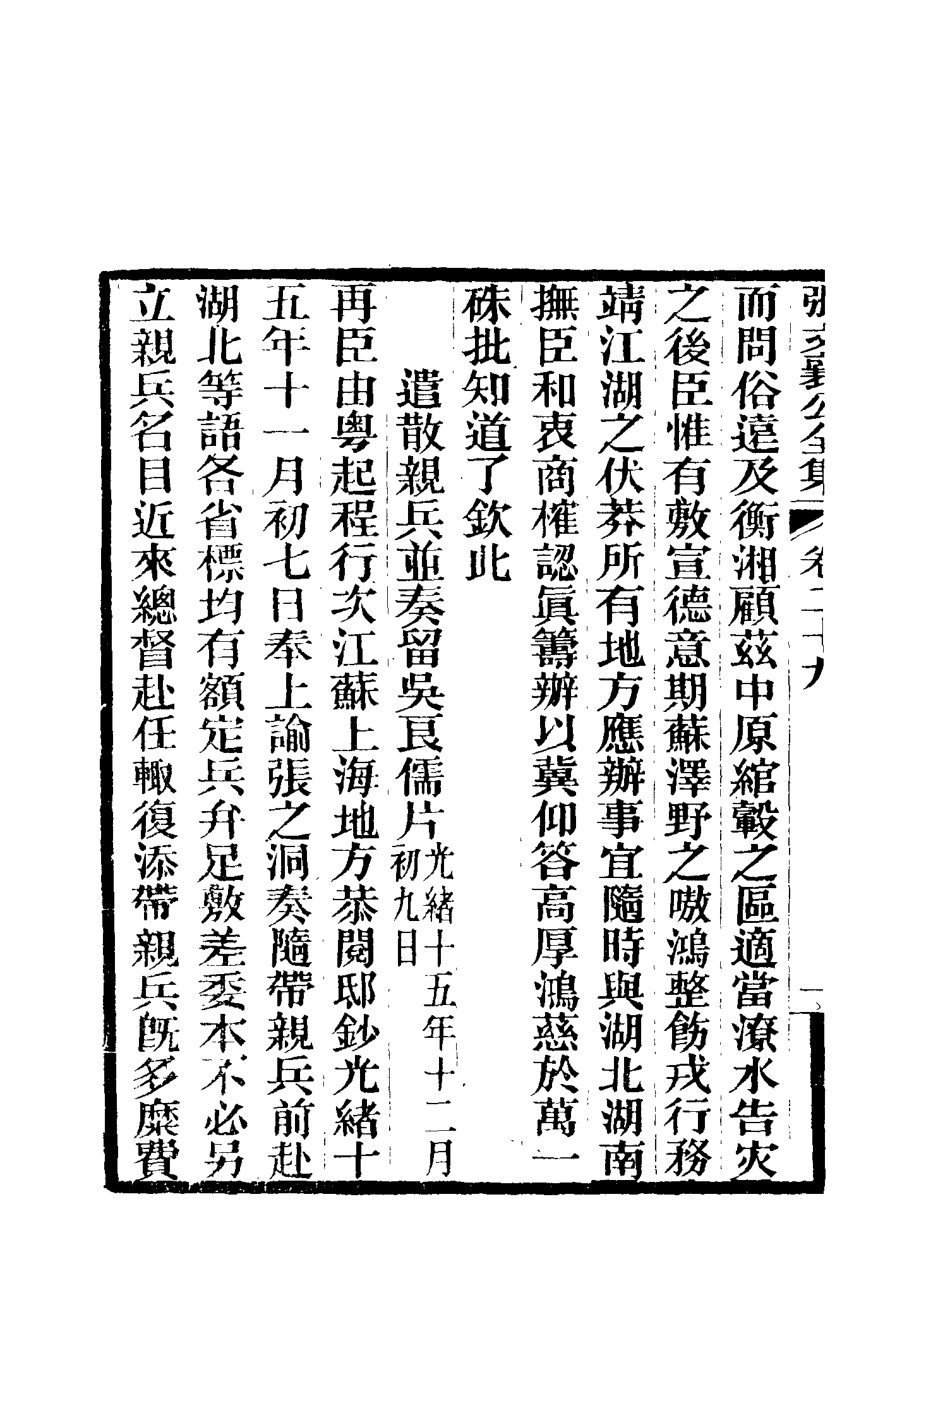 張文襄公全集 卷二十九 二
而問俗遠及衡湘顧茲中原綰轂之區適當潦水告灾
之後臣惟有敷宣德意期蘇澤野之嗷鴻整飭戎行務
靖江湖之伏莽所有地方應辦事宜隨時與湖北湖南
撫臣和衷商榷認眞籌辦以冀仰答高厚鴻慈於萬一
硃批知道了欽此
遣散親兵並奏留吳良儒片光緒十五年十二月
初九日
再臣由粵起程行次江蘇上海地方恭閱邸鈔光緒十
五年十一月初七日奉上諭張之洞奏隨帶親兵前赴
湖北等語各省標均有額定兵弁足敷差委本不必另
立親兵名目近來總督赴任輙復添帶親兵旣多糜費